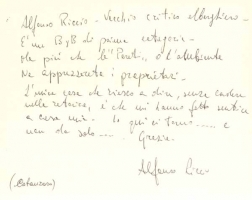 Alfonso Riccio - Vecchio critico Alberghiero
È un B&B di prima categoria.
Ma più che le "Perle" è l'ambiente
Ne apprezzerete i proprietari.
L'unica cosa che riesco a dire, senza cadere
nella retorica, è che mi hanno fatto sentire
a casa mia. Io qui ci torno ..... e
non da solo .... . Grazie.
Alfonso Riccio
(Catanzaro)